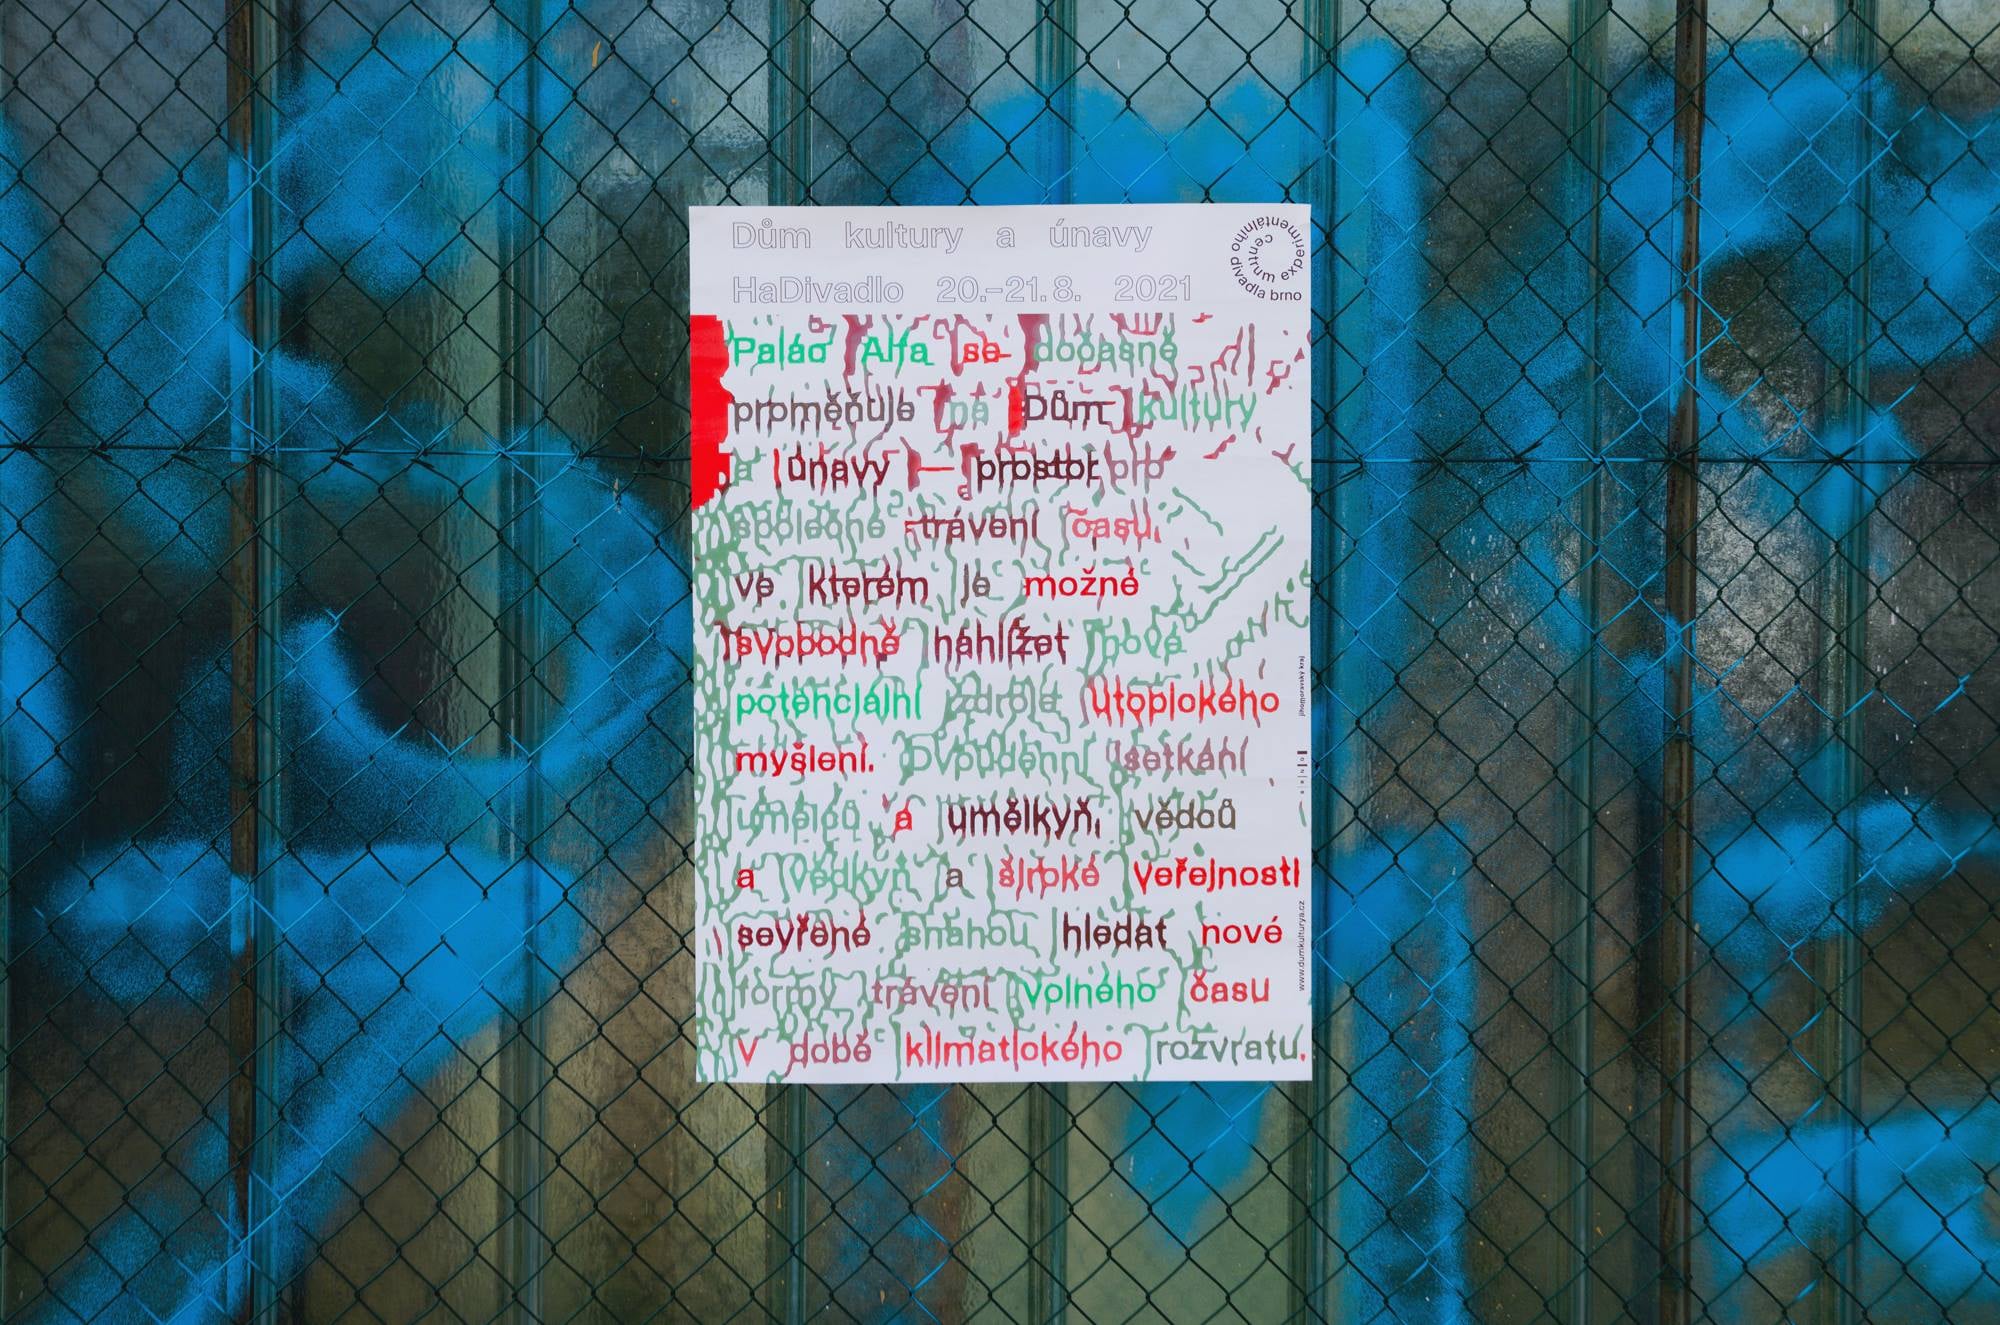 Dům kultury a únavy
HaDivadlo 20.–21. 8. 2021
centrum experimentálního divadla brno
Palác Alfa se dočasně
proměňuje na Dům kultury
a únavy — prostor pro
společné trávení času,
ve kterém je možné
svobodně nahlížet nové
potenciální zdroje utopického
myšlení. Dvoudenní setkání
umělců a umělkyň, vědců
a vědkyň a široké veřejnosti
sevřené snahou hledat nové
formy trávení volného času
v době klimatického rozvratu.
jihomoravský kraj
www.dumkulturya.cz